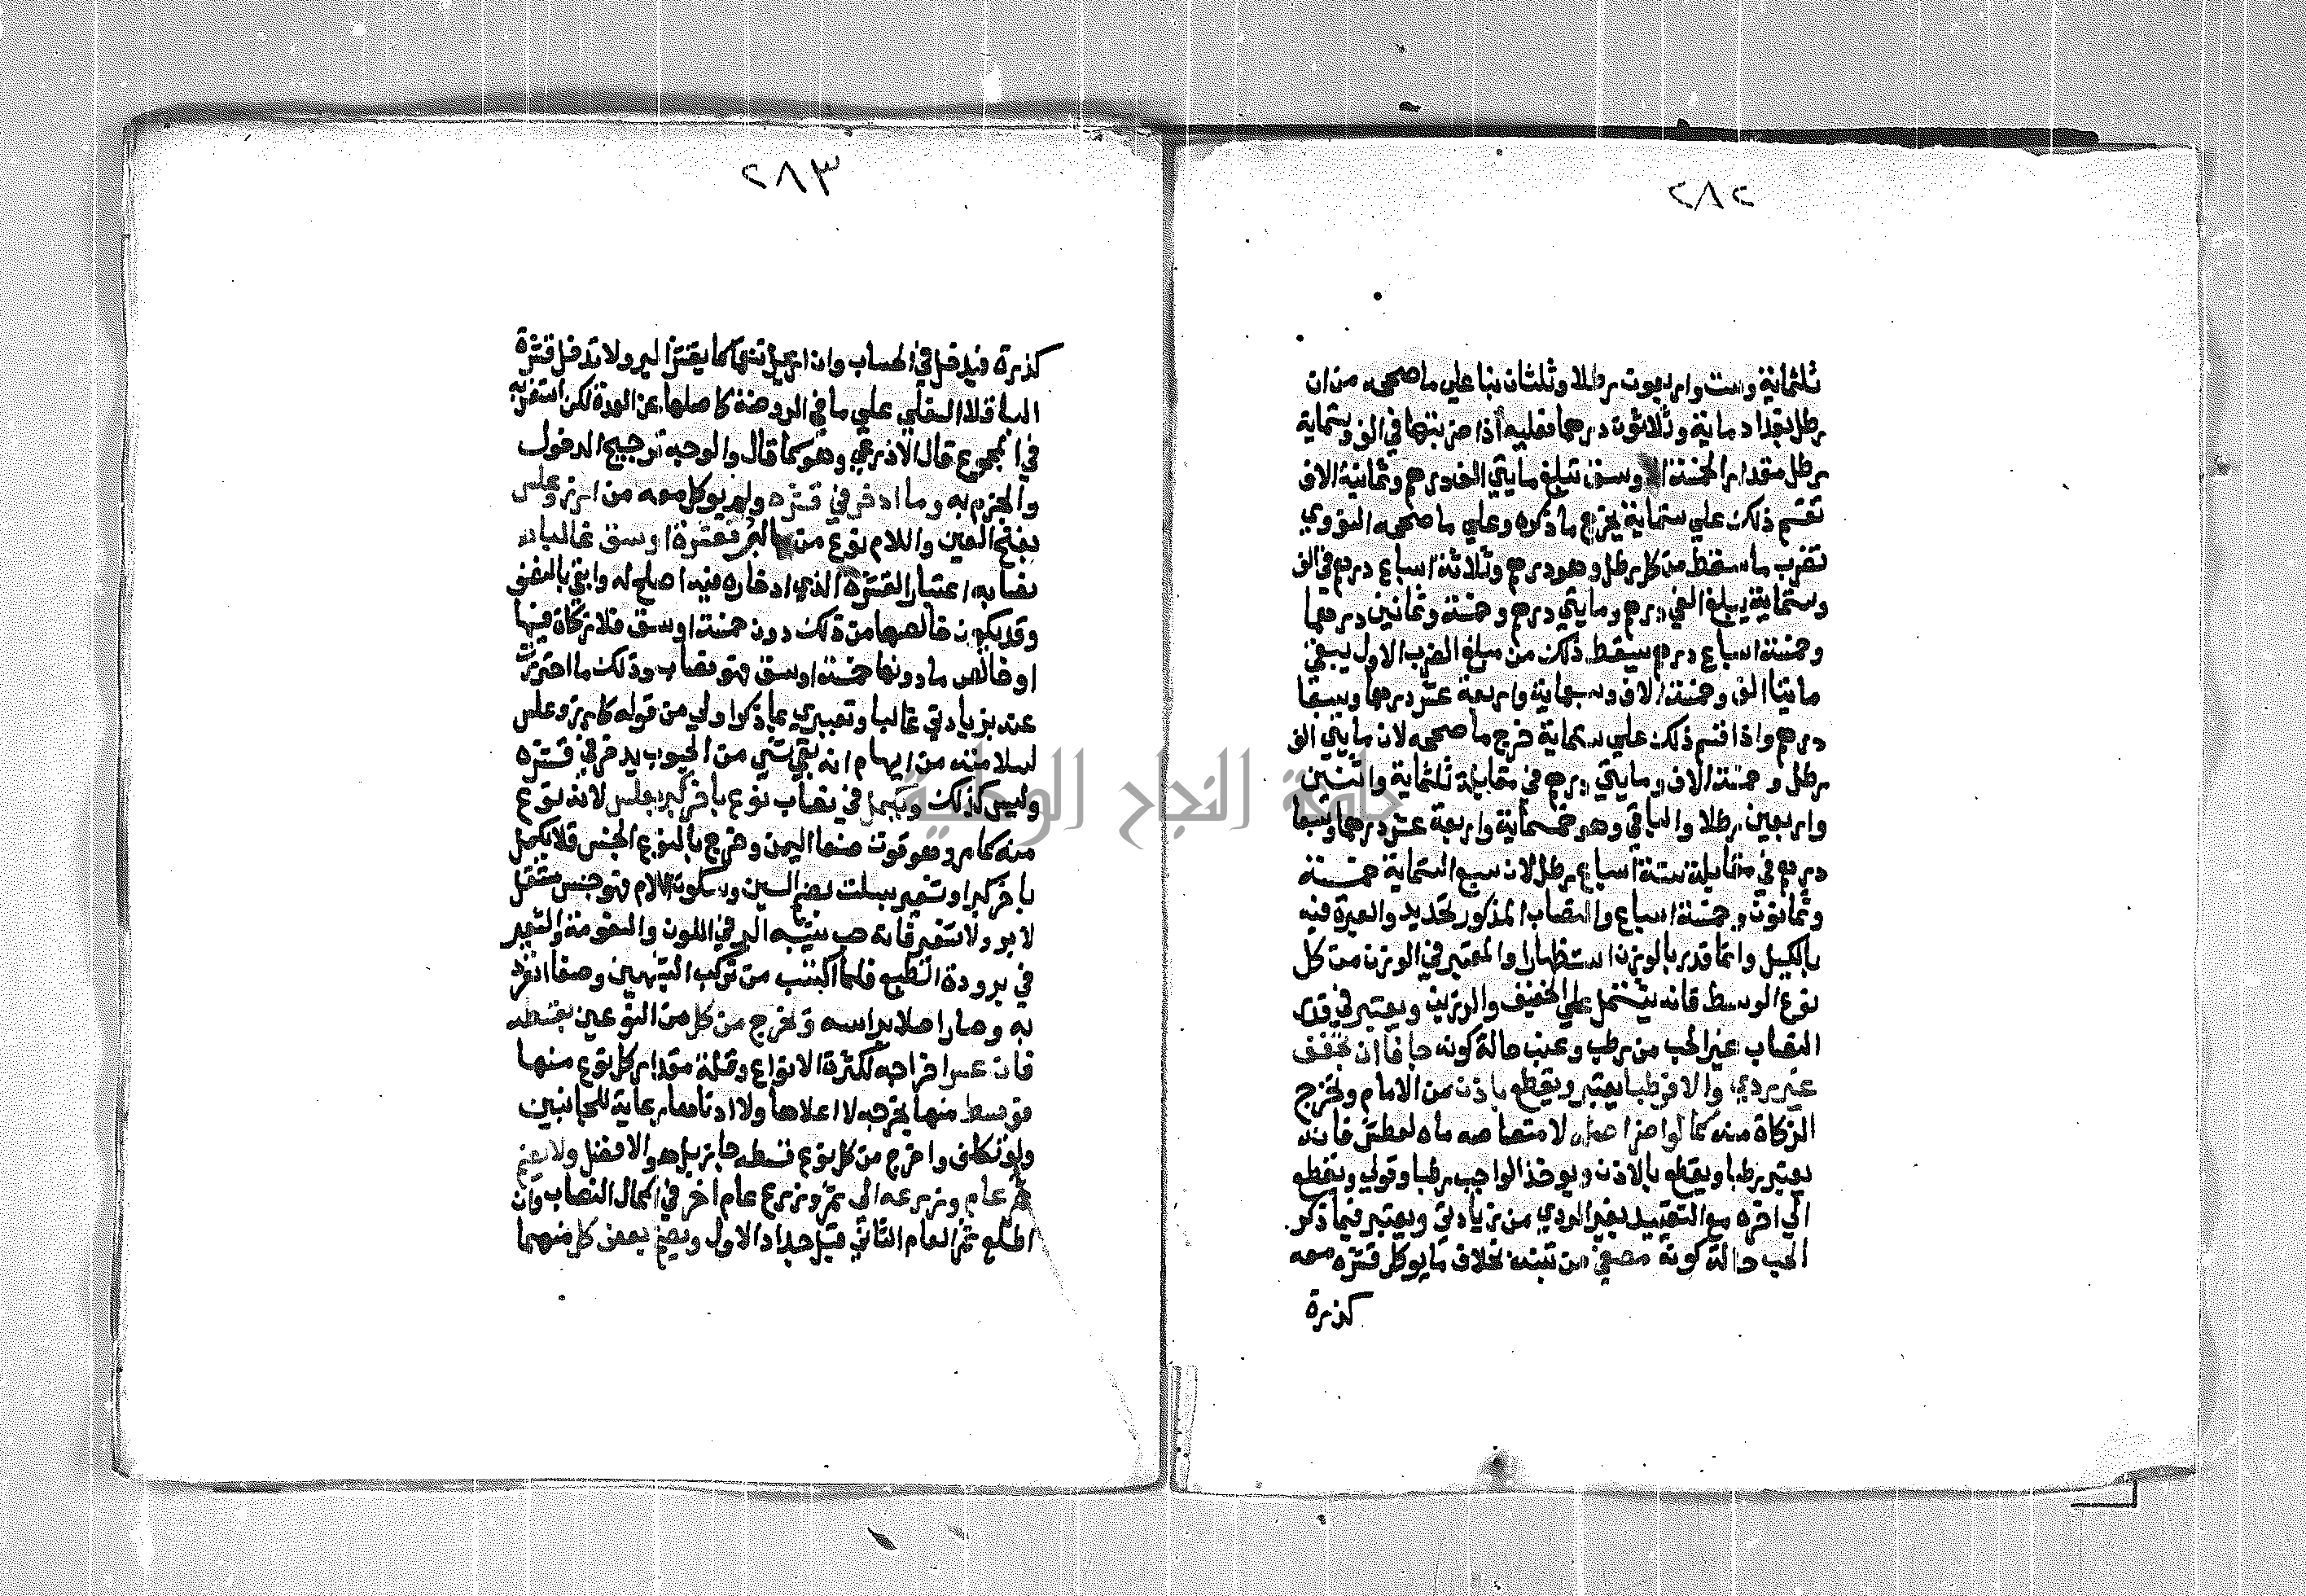 ٢٨٢
ثلثماية وست واربعون رطلا وثلثان بنا علي ما صححه من ان
رطل بغداد ماية وثلاثون درهما فعليه اذا ضربتها في الف وستماية
رطل مقدار الخمسة الاوسق تبلغ مايتي الف درهم وثمانية الاف
تقسم ذلك علي ستماية يخرج ما ذكره وعلي ما صححه النووي
تضرب ما سقط من كل رطل وهو درهم وثلاثة اسباع درهم في الف
وستماية يبلغ الفي درهم ومايتي درهم وخمسة وثمانين درهما
وخمسة اسباع درهم يسقط ذلك من مبلغ الضرب الاول يبقي
مايتا الف وخمسة الاف وسبعماية واربعة عشر درهما وسبعا
درهم واذا قسم ذلك علي ستماية خرج ما صححه لان مايتي الف
رطل وخمسة الاف ومايتي درهم في مقابلة ثلثماية واثنين
واربعين رطلا والباقي وهو خمسماية واربعة عشر درهما وسبعا
درهم في مقابلة ستة اسباع رطل لان سبع الستماية خمسة
وثمانون وخمسة اسباع والنصاب المذكور تحديد والعبرة فيه
بالكيل وانما قدر بالوزن استظهارا والمعتبر في الوزن من كل
نوع الوسط فانه يشتمل علي الخفيف والرزين ويعتبر في قدر
النصاب غير الحب من رطب وعنب حالة كونه جافا ان تجفف
غير ردي والا فرطبا يعتبر ويقطع باذن من الامام وتخرج
الزكاة منه كما لو اضر اصله لامتصاصه ماه لعطش فانه
يعتبر رطبا ويقطع بالاذن ويوخذ الواجب رطبا وقولي ويقطع
الي اخره مع التقييد بغير الردي من زيادتي ويعتبر فيما ذكر
الحب حالة كونه مصفي من تبنه بخلاف ما يوكل قشره معه
كذرة
٢٨٣
كذرة فيدخل في الحساب وان ازيل تنعما كما يقشر البر ولا تدخل قشرة
الباقلا السفلي علي ما في الروضة كاصلها عن العدة لكن استغربه
في المجموع قال الاذرعي وهو كما قال والوجه ترجيح الدخول
والجزم به وما ادخر في قشره ولم يوكل معه من ارز وعلس
بفتح العين واللام نوع من البر فعشرة اوسق غالبا
نصابه اعتبار القشره الذي ادخاره فيه اصلح له وابقي بالنصف
وقد يكون خالصها من ذلك دون خمسة اوسق فلا زكاة فيها
او خالص ما دونها خمسة اوسق فهو نصاب وذلك ما احترزت
عنه بزيادتي غالبا وتعبيري بما ذكر اولي من قوله كارز وعلس
لسلامته من ايهام انه بقي شي من الحبوب يدخر في قشره
وليس كذلك ويكمل في نصاب نوع باخر كبر بعلس لانه نوع
منه كما مر وهو قوت صنعا اليمن وخرج بالنوع الجنس فلا يكمل
باخر كبر او شعير بسلت بضم السين وسكون اللام فهو جنس مستقل
لا بر ولا شعير فانه حب يشبه البر في اللون والنعومة والشعير
في برودة الطبع فلما اكتسب من تركب الشبهين وصفا انفرد
به وصار اصلا براسه ويخرج من كل من النوعين بقسطه
فان عسر اخراجه لكثرة الانواع وقلة مقدار كل نوع منها
فوسط منها يخرجه لا اعلاها ولا ادناها رعاية للجانبين
ولو تكلف واخرج من كل نوع قسطه جاز بل هو الافضل ولا يضم
ثمر عام وزرعه الي ثمر وزرع عام اخر في اكمال النصاب وان
اطلع ثمر العام الثاني قبل جداد الاول ويضم بعض كل منهما
جامعة النجاح الوطنية